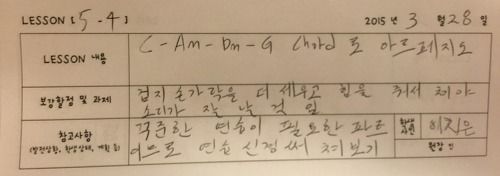 LESSON [5-4] 2015 년 3 월 28 일
LESSON 내용 C-Am-Dm-G Chord 로 아르페지오
보강할점 및 과제 검지 손가락을 더 세우고 힘을 줘서 쳐야
소리가 잘 날 것 임
참고사항 꾸준한 연습이 필요한 파트 학생
(발전상황, 학생상태, 계획 등) 이므로 연습 신경써 쳐보기 싸인
원장 인